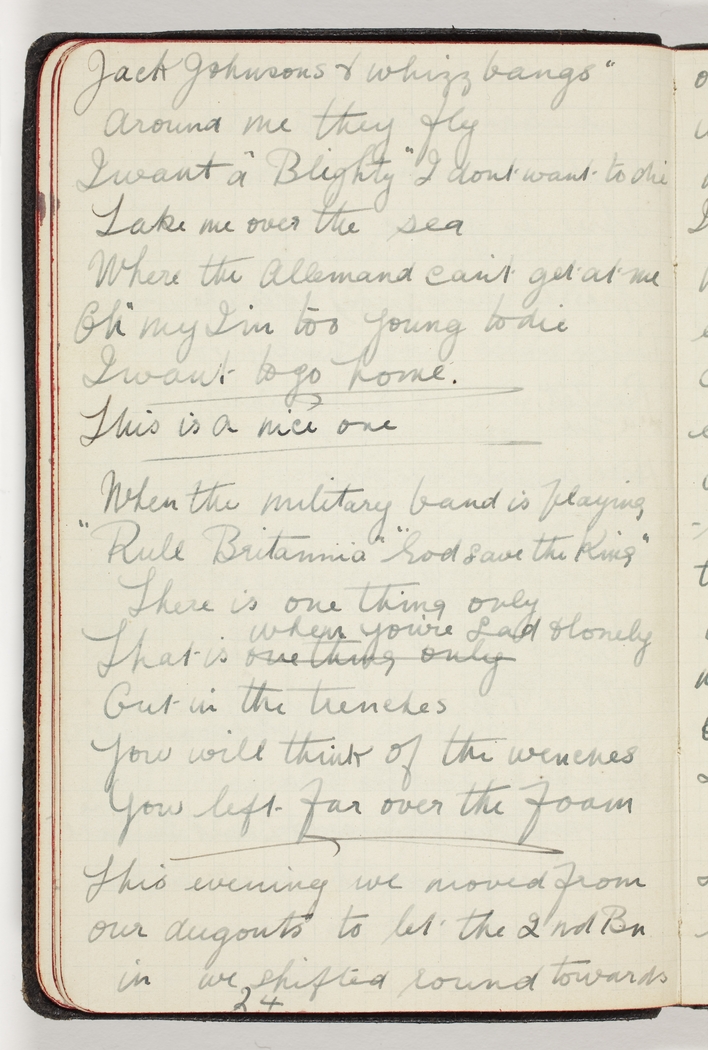 Jack Johnsons & whizz bangs"
around me they fly
I want a "Blighty" I dont want to die
Take me over the sea
Where the Allemand can't get at me
Oh my I'm too young to die
I want to go home.
This is a nice one
When the military band is playing
"Rule Britannia" "God save the King"
There is one thing only
when you're sad & lonely
That is one thing only
Out in the trenches
You will think of the wenches
You left far over the foam
This evening we moved from
our dugouts to let the 2nd Bn
in we shifted round towards
24